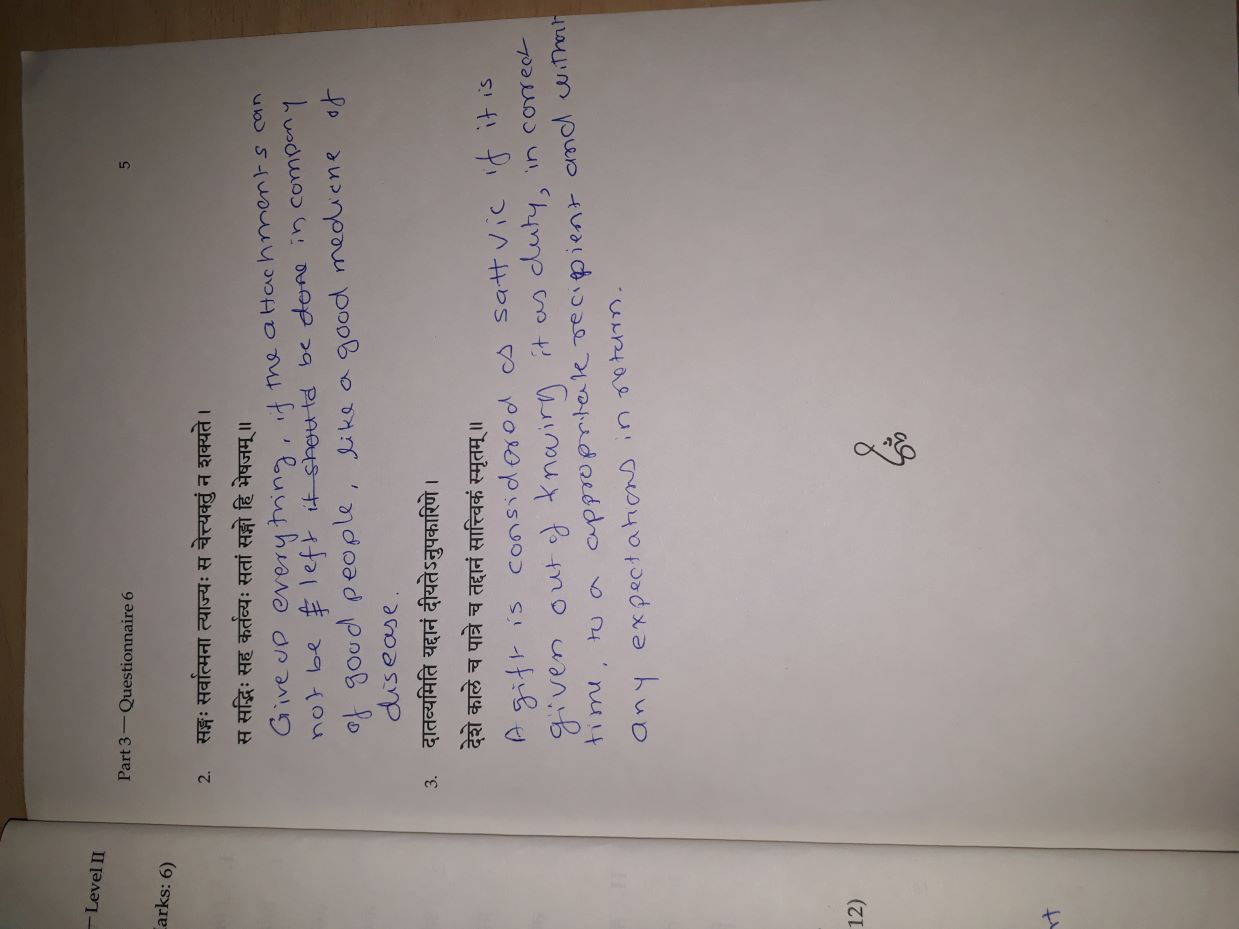 —Level II
Marks: 6)
12)
Part 3 — Questionnaire 6 5
2. सङ्गः सर्वात्मना त्याज्यः स चेत्त्यक्तुं न शक्यते।
स सद्भिः सह कर्तव्यः सतां सङ्गो हि भेषजम्॥
Give up everything, if the attachments can
not be left it should be done in company
of good people, like a good medicne of
disease.
3. दातव्यमिति यद्दानं दीयतेऽनुपकारिणे।
देशे काले च पात्रे च तद्दानं सात्त्विकं स्मृतम्॥
A gift is considered as sattvic if it is
given out of knowing it as duty, in correct
time, to a appropritate recipient and without
any expectations in return.
ॐ